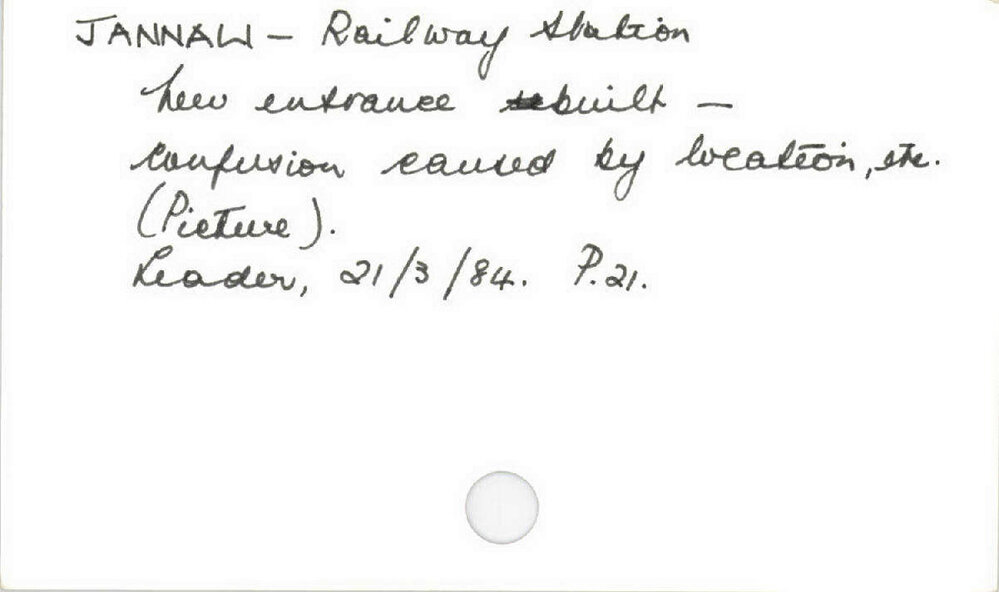 JANNALI - Railway Station
New entrance built -
confusion caused by location, etc.
(Picture).
Leader, 21/3/84. P.21.